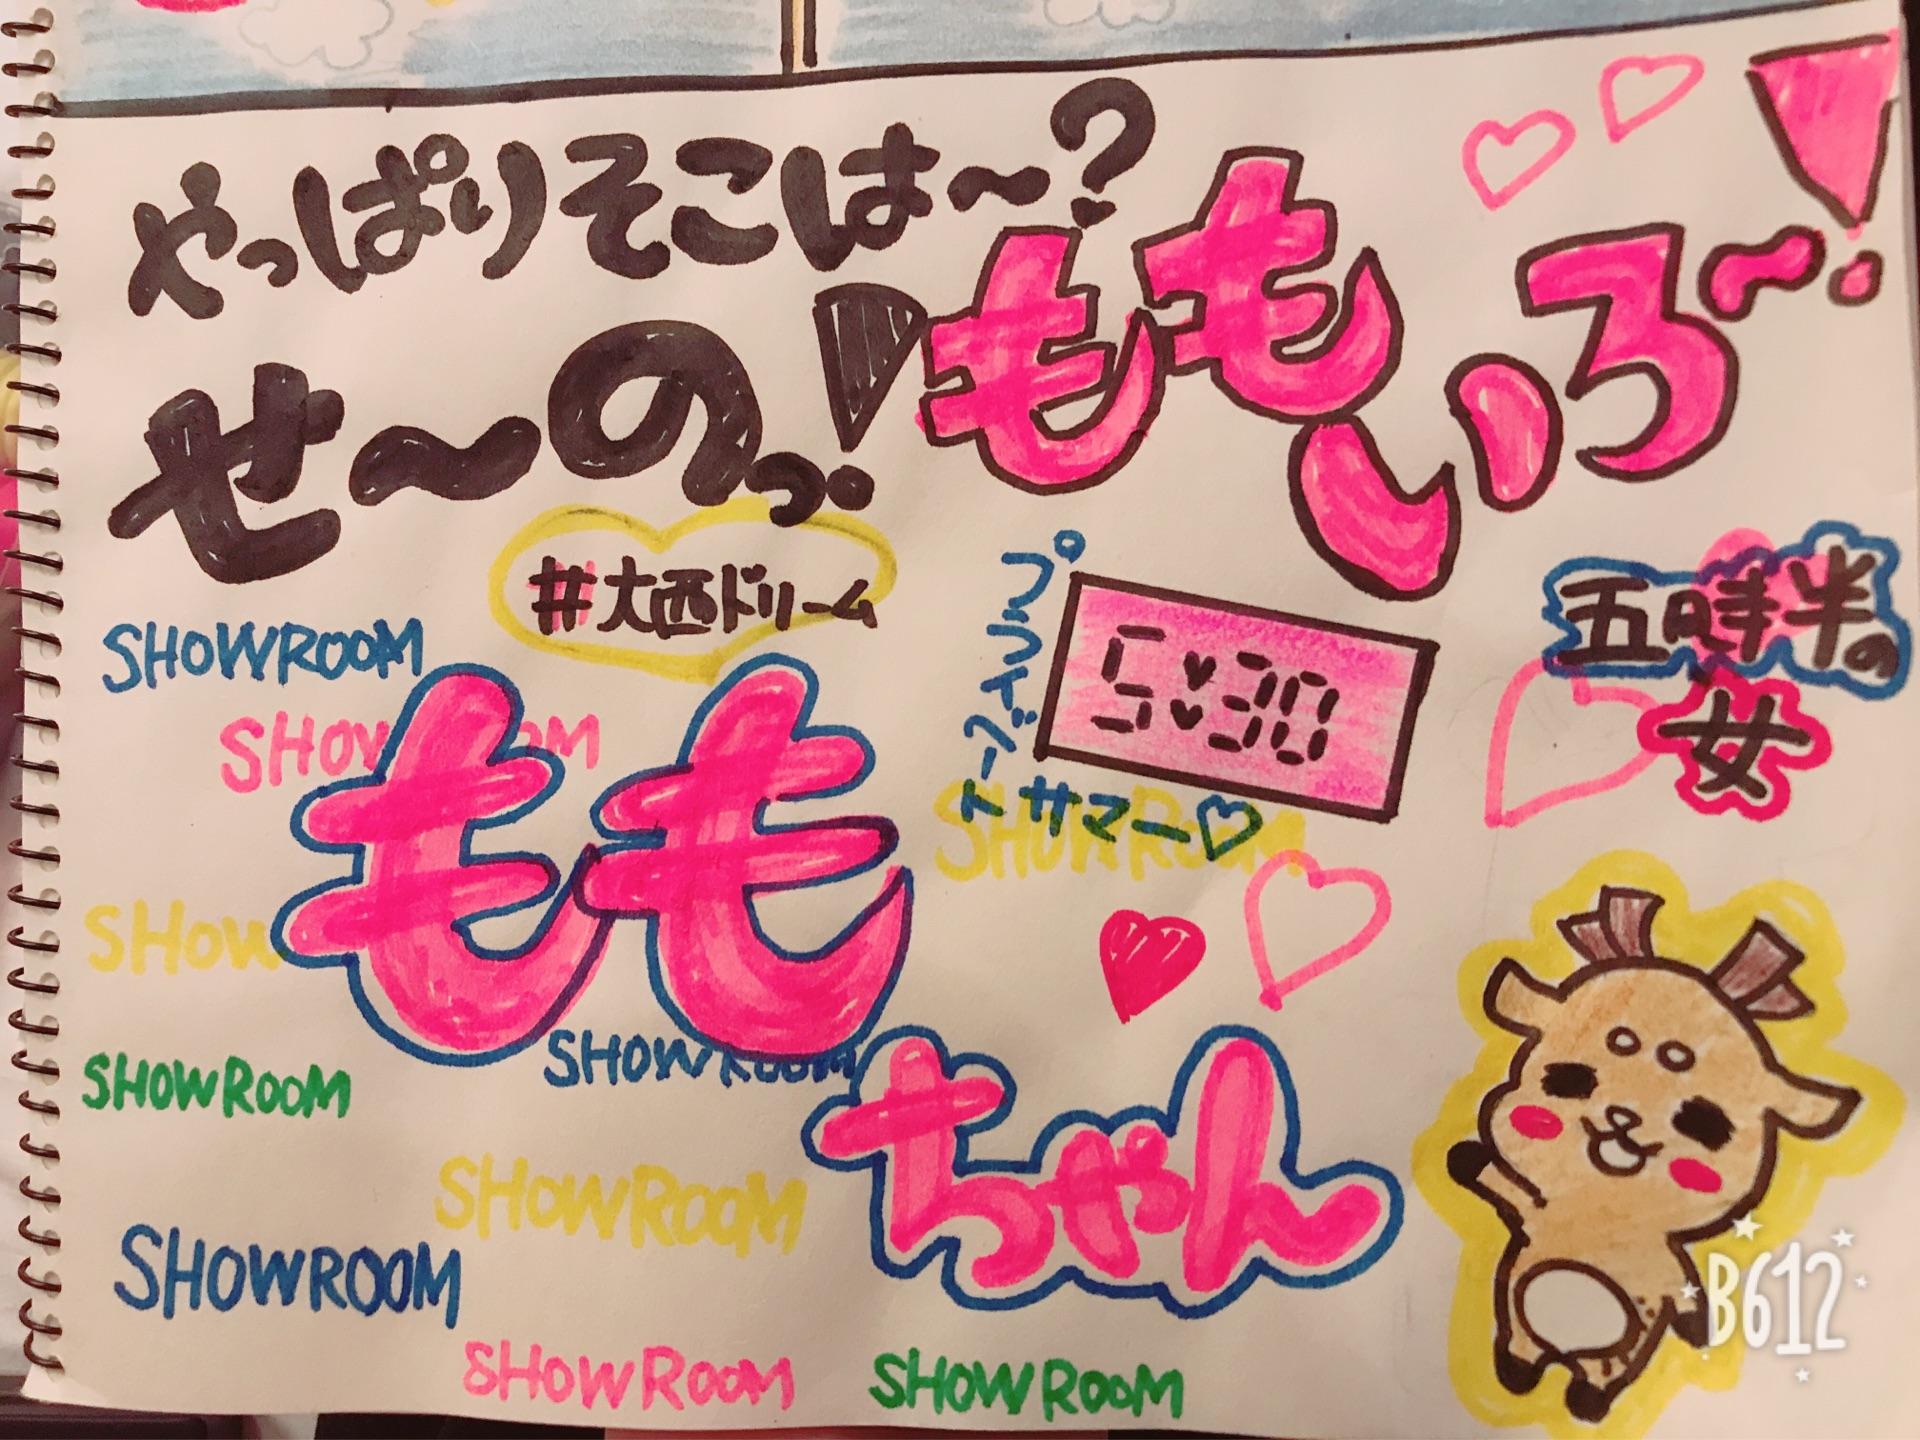 やっぱりそこは〜?
せ〜のっ!
ももいろ〜!
#大西ドリーム
プライベートサマー♡
5:30
五時半の
女
SHOWROOM
SHOWROOM
もも
SHOWROOM
SHOW
SHOWROOM
SHOWROOM
ちゃん
SHOWROOM
SHOWROOM
SHOWROOM
SHOWROOM
B612